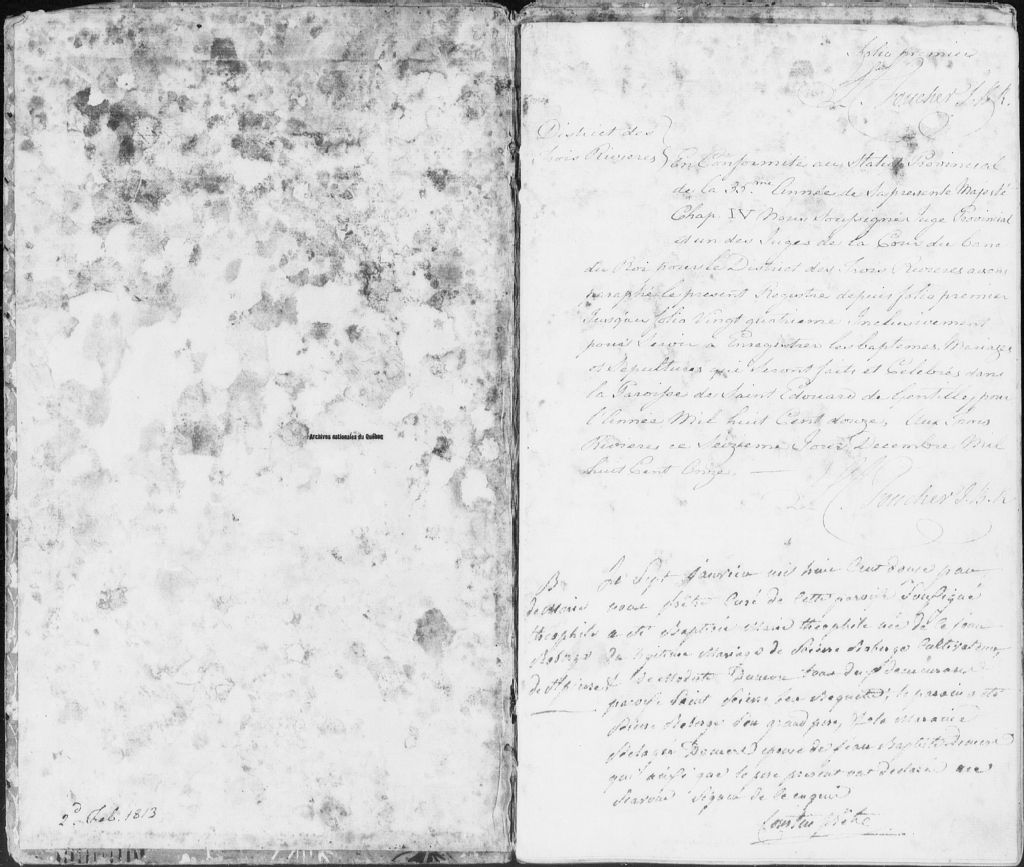 Archives nationales du Québec
2d. Feb. 1813
folio premier
L. C. Foucher J.B.R.
District des
Trois Rivieres
En Conformité au Statut Provincial
de la 35.me Année de Sa presente Majesté
Chap. IV Nous Soussigné Juge Provincial
et un des Juges de la Cour du banc
du Roi pour le District des Trois Rivieres avons
paraphé le present Registre depuis folio premier
Jusqu'au folio Vingt quatrieme Inclusivement
pour Servir a Enregistrer les baptêmes, Mariages
et Sepultures qui Seront faits et Celebrés dans
la Paroisse de Saint Edouard de Gentilly pour
l'Année Mil huit Cent douze, Aux Trois
Rivieres ce Seizieme Jour Decembre Mil
huit Cent Onze.
L. C. Foucher J.B.R.
B
de Marie
theophile
de St pierre
Le Sept Janvier mil huit Cent douze par
nous prêtre Curé de cette paroisse Soussigné
a été Baptisée Marie theophile née de ce jour
du legitime Mariage de Pierre Cultivateur
& de Modeste tous deux Demeurans
paroisse Saint Pierre les Bequets; le parain a été
Pierre Son grand pere, & la Maraine
epouse de Jean Baptiste
qui ainsi que le pere present ont Declaré ne
Savoir Signer de ce enquis
Prêtre